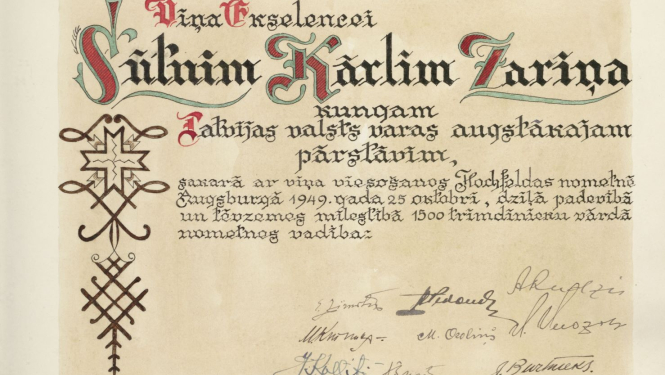 Viņa Ekselencei
Sūtnim Kārlim Zariņa
kungam
Latvijas valsts varas augstākajam
pārstāvim,
sakarā ar viņa viesošanos Hochfeldas nometnē
Augsburgā 1949. gada 25 oktobrī, dziļā padevībā
un tēvzemes mīlestībā 1500 trimdinieku vārdā
nometnes vadība:
M. Ozoliņš
J. Bartnieks.